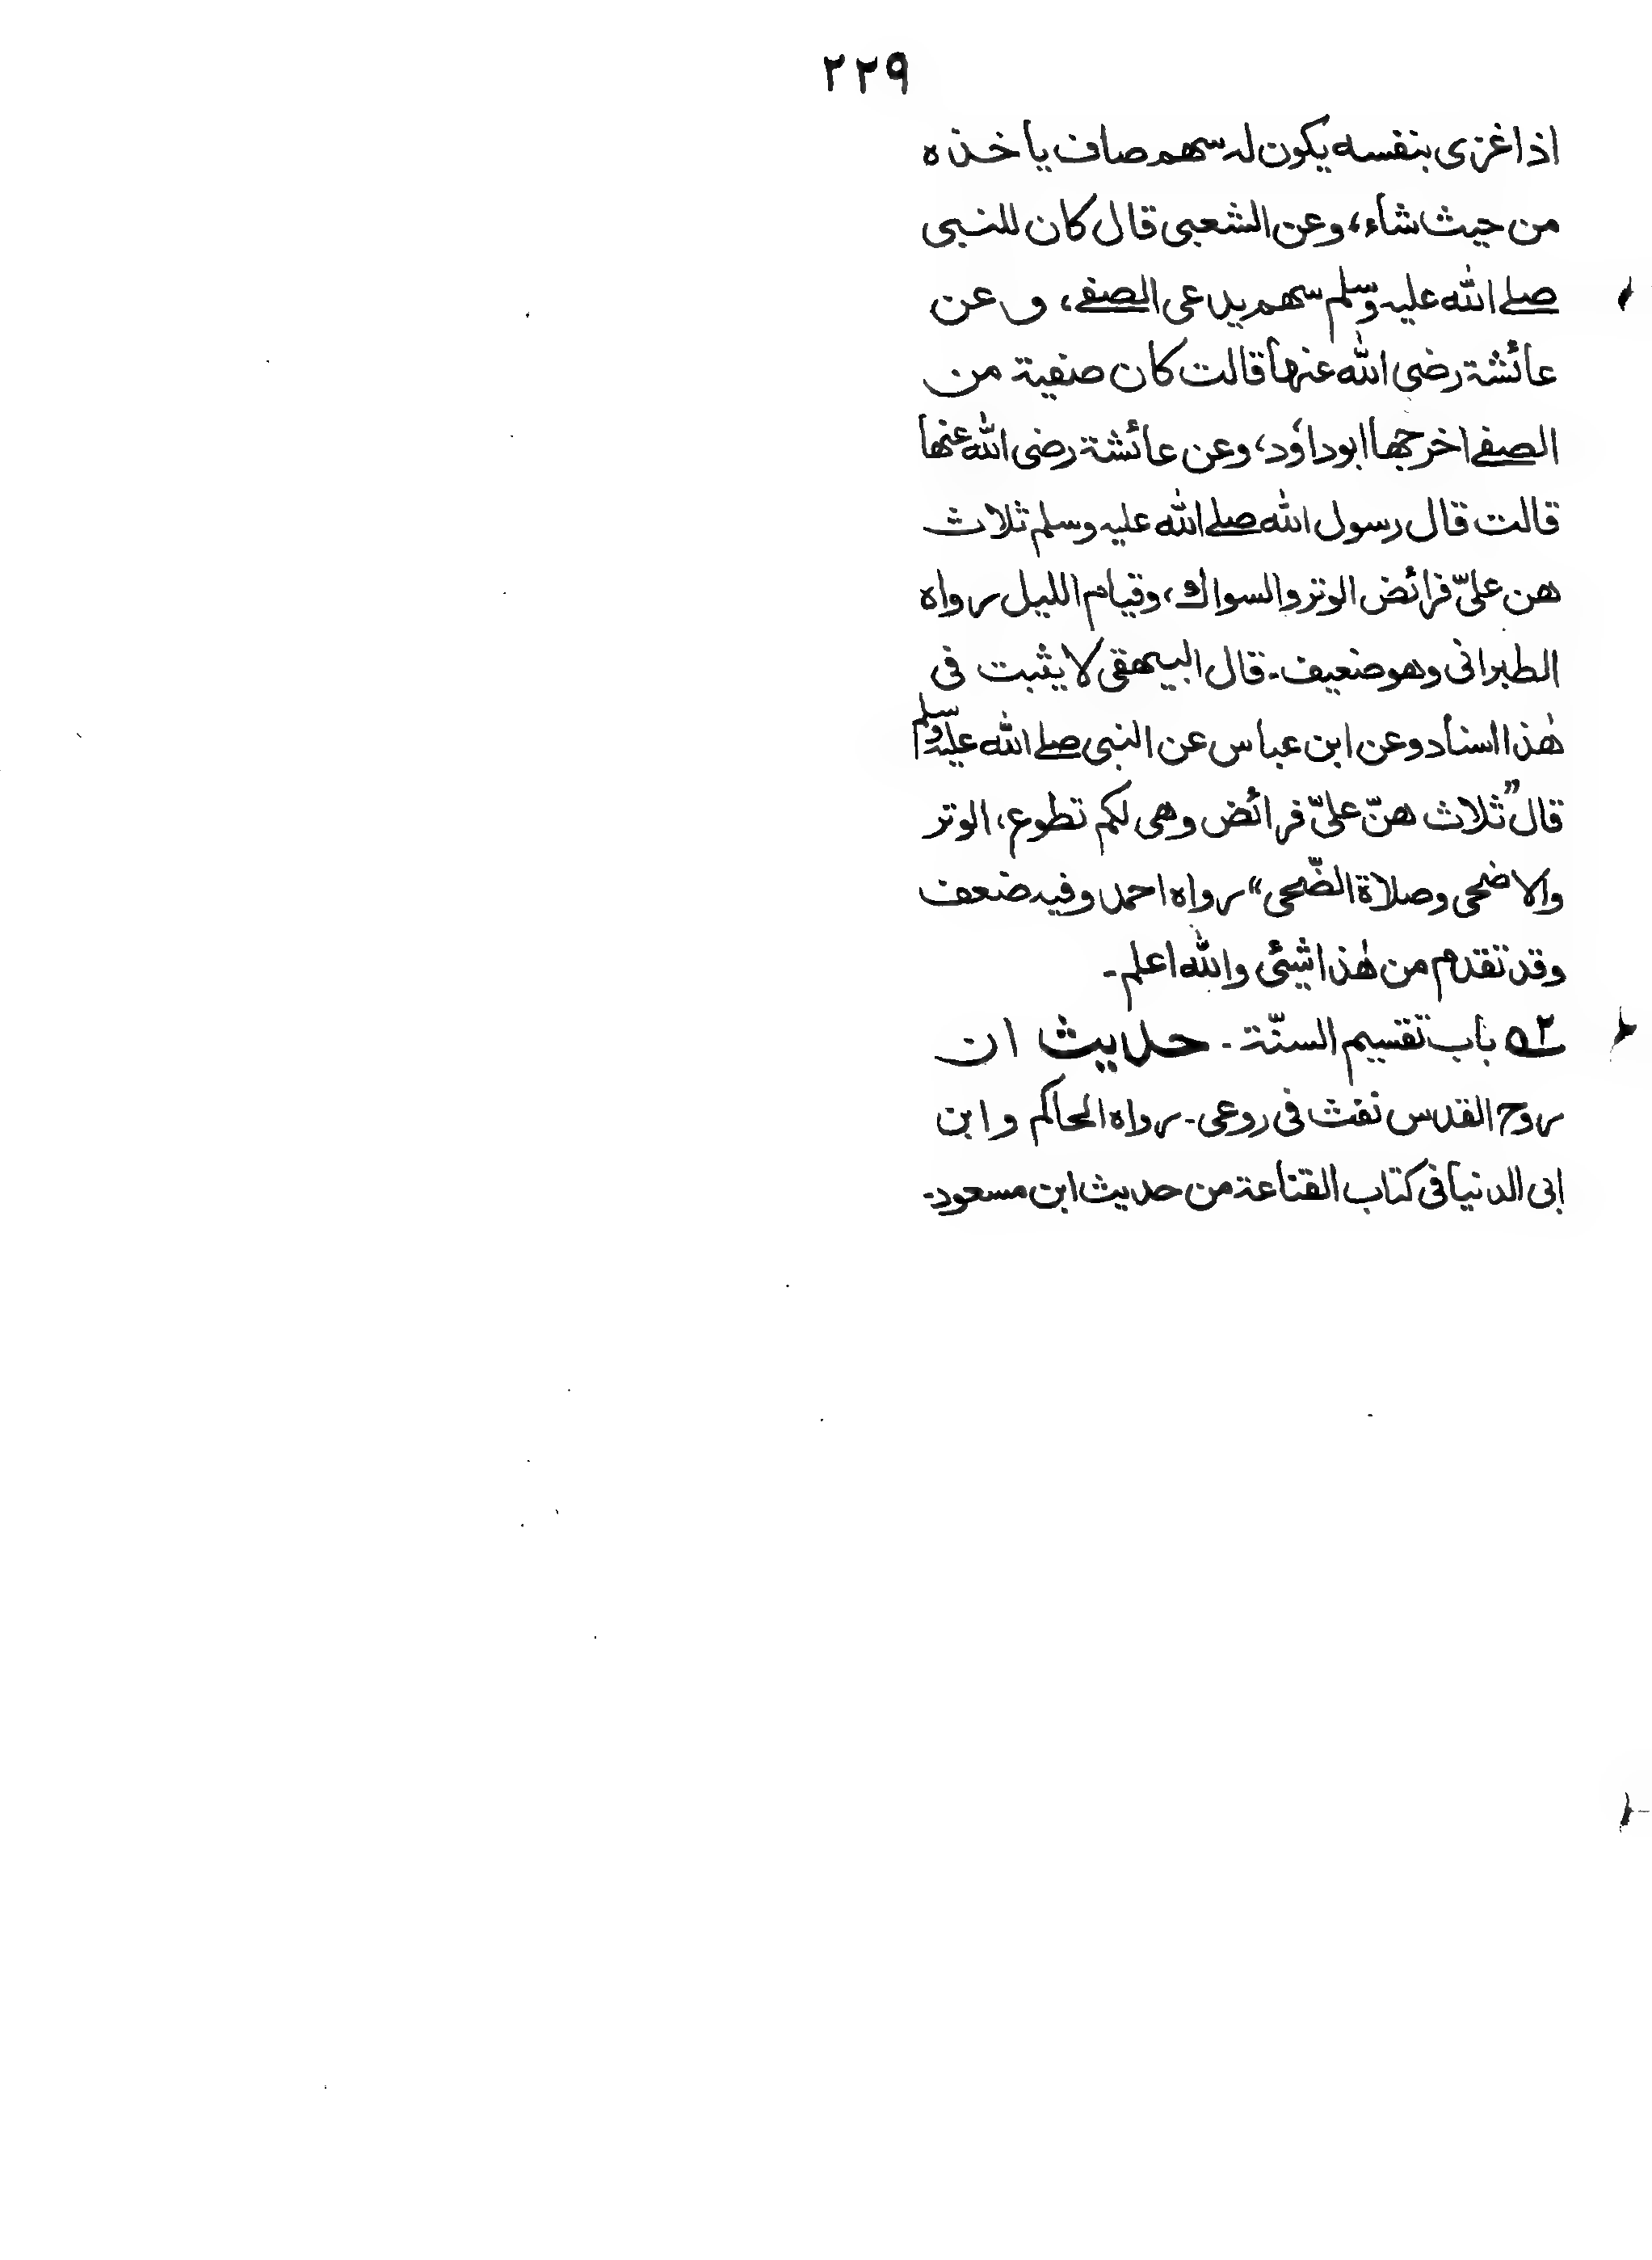 ٢٢٩
اذا غزى بنفسه يكون له سهم صاف ياخذه
من حيث شاء، وعن الشعبى قال كان للنبى
صلے الله عليه وسلم سهم يدعى الصفے، وعن
عائشة رضى الله عنها قالت كان صفية من
الصفے اخرجها ابوداؤد، وعن عائشة رضى الله عنها
قالت قال رسول الله صلے الله عليه وسلم ثلاث
هن علىّ فرائض الوتر والسواك، وقيام الليل رواه
الطبرانى وهو ضعيف۔ قال البيهقى لا يثبت فى
هٰذا اسناد وعن ابن عباس عن النبى صلے الله عليه وسلم
قال ”ثلاث هنّ علىّ فرائض وهى لكم تطوع، الوتر
والاضحى وصلاة الضّحى“ رواه احمد وفيه ضعف
وقد تقدم من هٰذا شيئى والله اعلم۔
٥٢ باب تقسيم السنّة۔ حديث ان
روح القدس نفث فى روعى۔ رواه الحاكم وابن
ابى الدنيا فى كتاب القناعة من حديث ابن مسعود۔